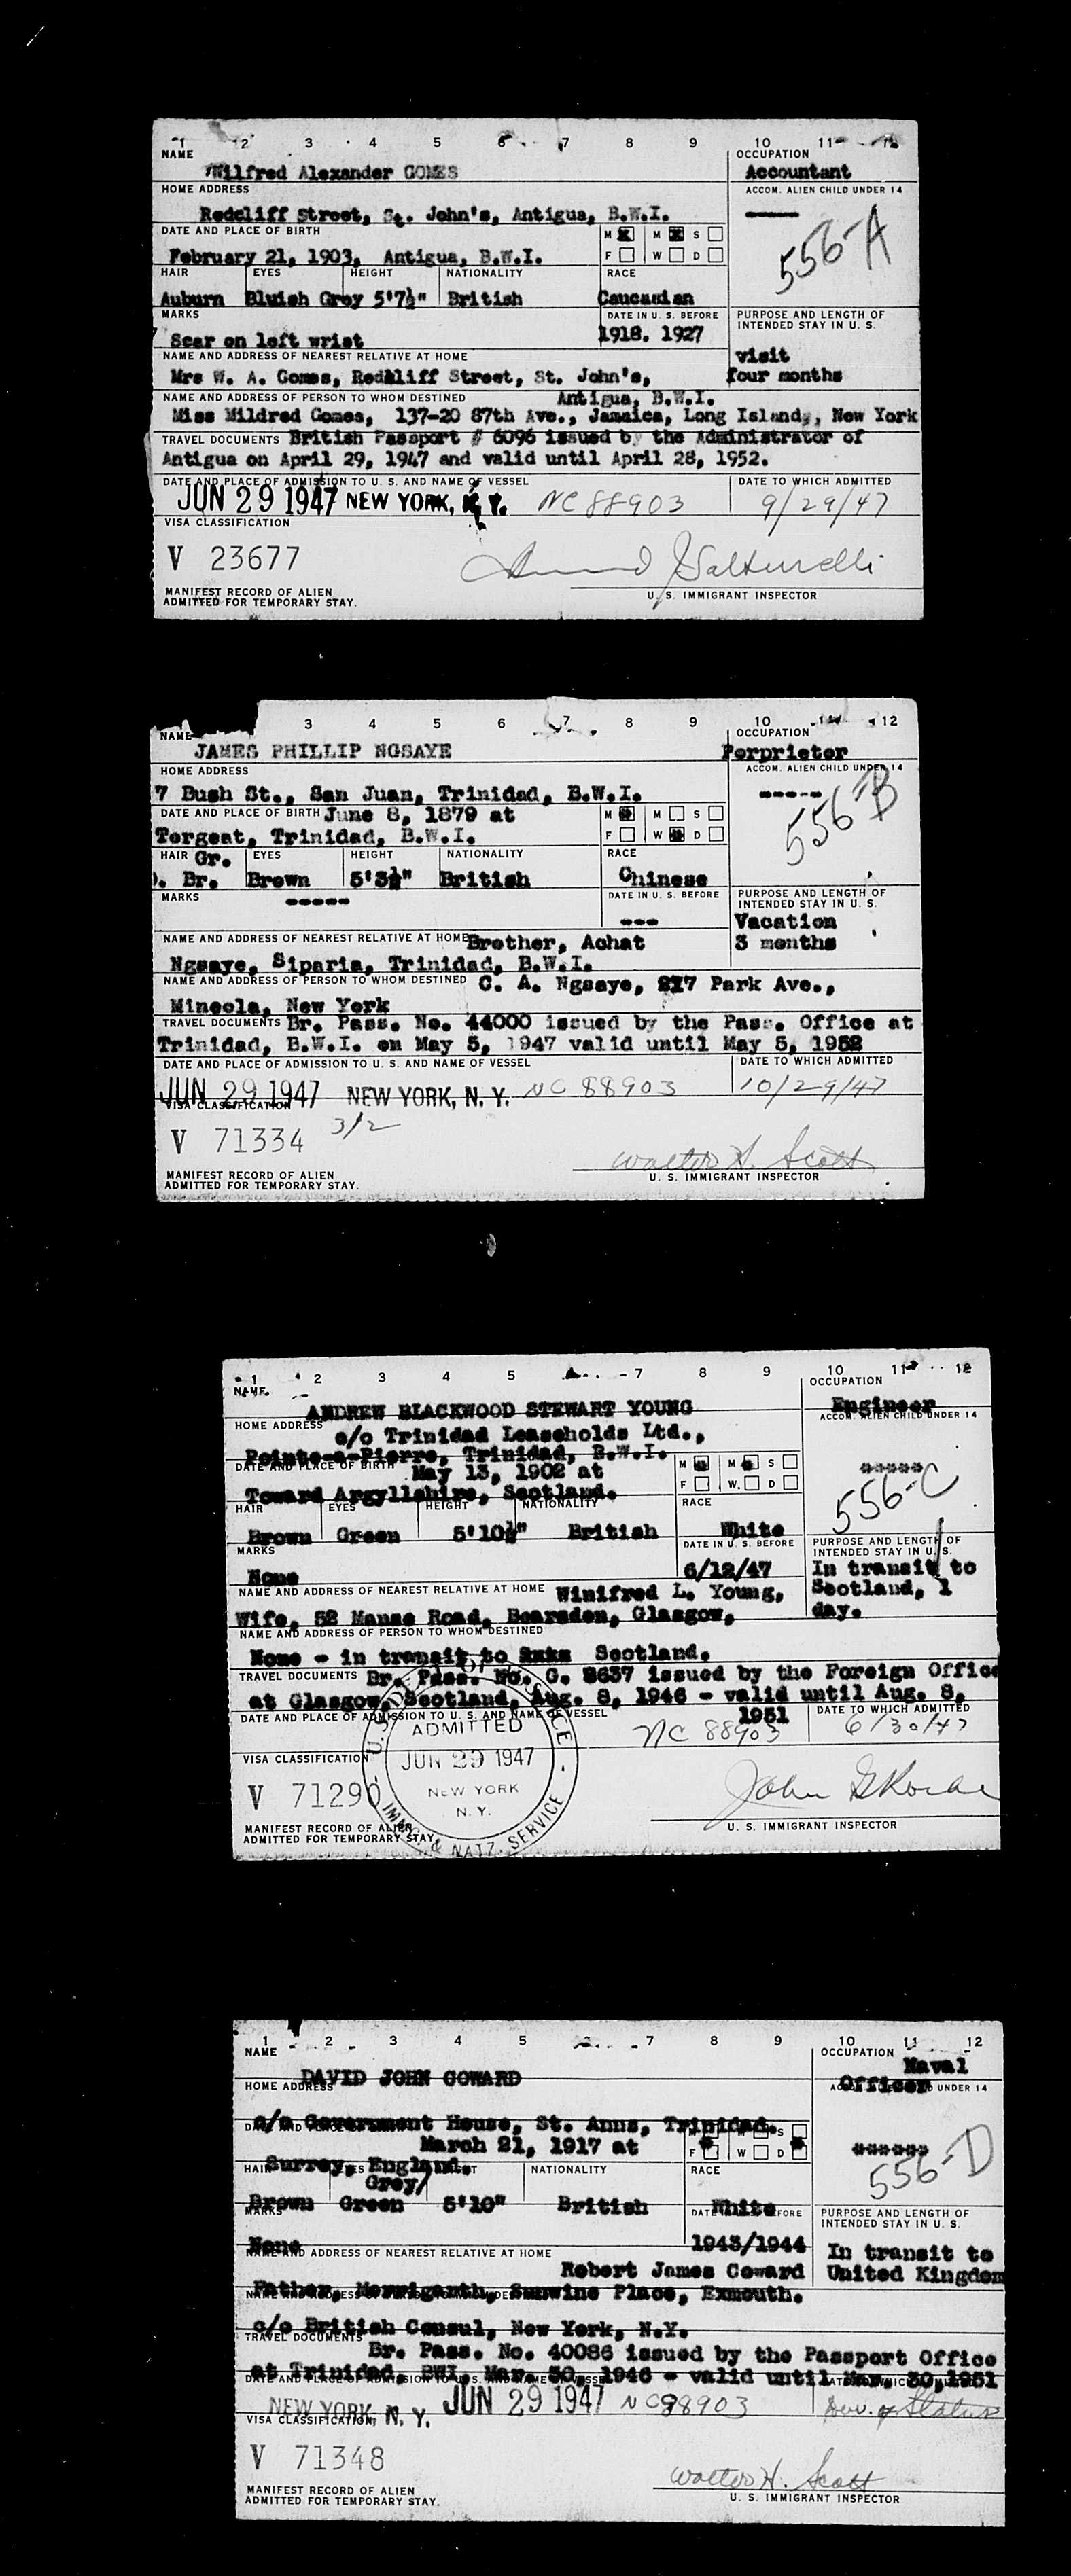 1 2 3 4 5 6 7 8 9 10 11 12
NAME OCCUPATION
Wilfred Alexander GOMES Accountant
HOME ADDRESS ACCOM. ALIEN CHILD UNDER 14
Redcliff Street, St. John's, Antigua, B.W.I. -----
DATE AND PLACE OF BIRTH M M S
556-A
February 21, 1903, Antigua, B.W.I. F W D
HAIR EYES HEIGHT NATIONALITY RACE
Auburn Bluish Grey 5'7½" British Caucasian
MARKS DATE IN U. S. BEFORE PURPOSE AND LENGTH OF INTENDED STAY IN U. S.
Scar on left wrist 1918. 1927
NAME AND ADDRESS OF NEAREST RELATIVE AT HOME visit
Mrs W. A. Gomes, Redcliff Street, St. John's, four months
NAME AND ADDRESS OF PERSON TO WHOM DESTINED Antigua, B.W.I.
Miss Mildred Gomes, 137-20 87th Ave., Jamaica, Long Island, New York
TRAVEL DOCUMENTS British Passport # 6096 issued by the Administrator of
Antigua on April 29, 1947 and valid until April 28, 1952.
DATE AND PLACE OF ADMISSION TO U. S. AND NAME OF VESSEL DATE TO WHICH ADMITTED
JUN 29 1947 NEW YORK, N. Y. NC 88903 9/29/47
VISA CLASSIFICATION
V 23677
MANIFEST RECORD OF ALIEN U. S. IMMIGRANT INSPECTOR
ADMITTED FOR TEMPORARY STAY.
3 4 5 6 7 8 9 10 11 12
NAME OCCUPATION
JAMES PHILLIP NGSAYE Porprietor
HOME ADDRESS ACCOM. ALIEN CHILD UNDER 14
7 Bush St., San Juan, Trinidad, B.W.I. -----
DATE AND PLACE OF BIRTH June 8, 1879 at M M S
556-B
Torgeat, Trinidad, B.W.I. F W D
HAIR Gr. EYES HEIGHT NATIONALITY RACE
D. Br. Brown 5'3½" British Chinese
MARKS ----- DATE IN U. S. BEFORE PURPOSE AND LENGTH OF INTENDED STAY IN U. S.
--- Vacation
NAME AND ADDRESS OF NEAREST RELATIVE AT HOME Brother, Achat 3 months
Ngsaye, Siparia, Trinidad, B.W.I.
NAME AND ADDRESS OF PERSON TO WHOM DESTINED C. A. Ngsaye, 217 Park Ave.,
Mineola, New York
TRAVEL DOCUMENTS Br. Pass. No. 44000 issued by the Pass. Office at
Trinidad, B.W.I. on May 5, 1947 valid until May 5, 1952
DATE AND PLACE OF ADMISSION TO U. S. AND NAME OF VESSEL DATE TO WHICH ADMITTED
JUN 29 1947 NEW YORK, N. Y. NC 88903 10/29/47
VISA CLASSIFICATION
V 71334 3/2
Walter H. Scott
MANIFEST RECORD OF ALIEN U. S. IMMIGRANT INSPECTOR
ADMITTED FOR TEMPORARY STAY.
1 2 3 4 5 7 8 9 10 11 12
NAME OCCUPATION
ANDREW BLACKWOOD STEWART YOUNG Engineer
HOME ADDRESS ACCOM. ALIEN CHILD UNDER 14
c/o Trinidad Leaseholds Ltd.,
Pointe-a-Pierre, Trinidad, B.W.I. M M S
DATE AND PLACE OF BIRTH May 13, 1902 at F W. D
556-C
Toward Argyllshire, Scotland.
HAIR EYES HEIGHT NATIONALITY RACE
Brown Green 5'10½" British White
MARKS DATE IN U. S. BEFORE PURPOSE AND LENGTH OF INTENDED STAY IN U. S.
None 6/12/47 In transit to
NAME AND ADDRESS OF NEAREST RELATIVE AT HOME Winifred L. Young, Scotland, 1
Wife, 52 Manse Road, Bearsden, Glasgow, day.
NAME AND ADDRESS OF PERSON TO WHOM DESTINED
None - in transit to Scotland.
TRAVEL DOCUMENTS Br. Pass. No. C. 2637 issued by the Foreign Office
at Glasgow, Scotland, Aug. 8, 1946 - valid until Aug. 8,
DATE AND PLACE OF ADMISSION TO U. S. AND NAME OF VESSEL 1951 DATE TO WHICH ADMITTED
NC 88903 6/30/47
ADMITTED
JUN 29 1947
NEW YORK
N. Y.
IMMG. & NATZ. SERVICE
VISA CLASSIFICATION
V 71290
MANIFEST RECORD OF ALIEN U. S. IMMIGRANT INSPECTOR
ADMITTED FOR TEMPORARY STAY.
1 2 3 4 5 7 8 9 10 11 12
NAME OCCUPATION Naval
DAVID JOHN COWARD Officer
HOME ADDRESS UNDER 14
c/o Government House, St. Anns, Trinidad.
March 21, 1917 at F W D
556-D
Surrey, England.
HAIR NATIONALITY RACE
Grey/
Brown Green 5'10" British White
MARKS PURPOSE AND LENGTH OF INTENDED STAY IN U. S.
None 1943/1944 In transit to
NAME AND ADDRESS OF NEAREST RELATIVE AT HOME
Robert James Coward United Kingdom
Father, Merrigarth, Sunwine Place, Exmouth.
c/o British Consul, New York, N.Y.
TRAVEL DOCUMENTS
Br. Pass. No. 40086 issued by the Passport Office
at Trinidad, BWI. Mar. 30, 1946 - valid until Mar. 30, 1951
NEW YORK, N. Y. JUN 29 1947 NC 88903 Dur. of Status
VISA CLASSIFICATION
V 71348
Walter H. Scott
MANIFEST RECORD OF ALIEN U. S. IMMIGRANT INSPECTOR
ADMITTED FOR TEMPORARY STAY.